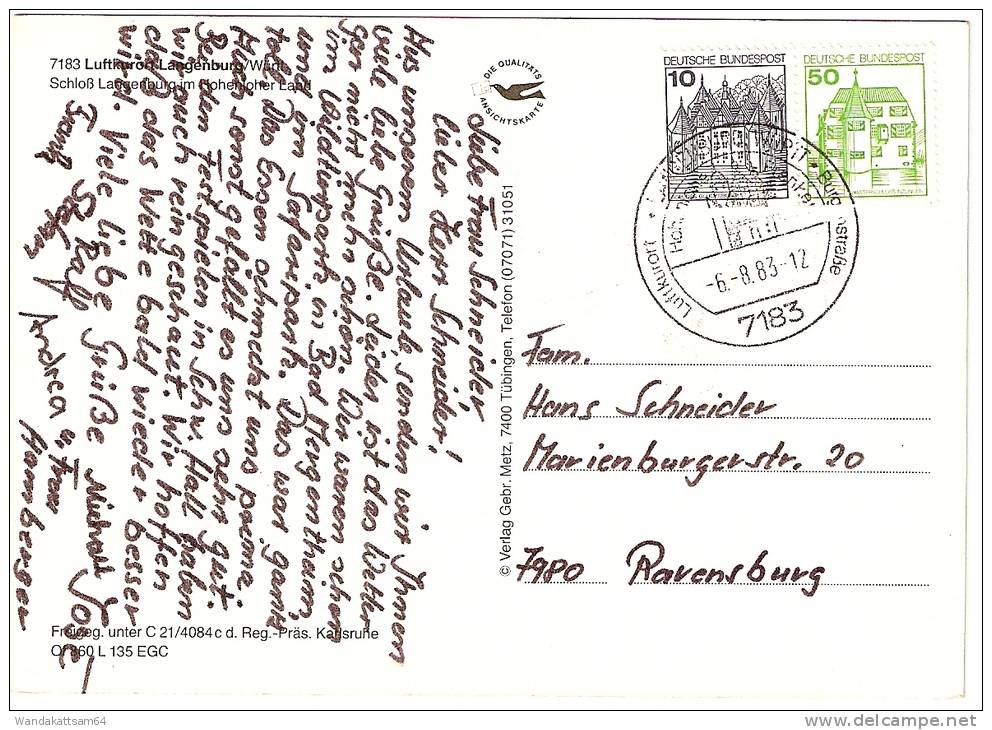 7183 Luftkurort Langenburg/Württ.
Schloß Langenburg im Hohenloher Land
DIE QUALITÄTS
ANSICHTSKARTE
DEUTSCHE BUNDESPOST
10
DEUTSCHE BUNDESPOST
50
Luftkurort
Burgenstraße
-6.-8.83-12
7183
Liebe Frau Schneider,
lieber Herr Schneider!
Aus unserem Urlaub senden wir Ihnen
viele liebe Grüße. Leider ist das Wetter
gar nicht schön. Wir waren schon
im Wildpark in Bad Mergentheim,
und im Safaripark. Das war ganz
toll. Das Essen schmeckt uns prima.
Auch sonst gefällt es uns sehr gut.
Bei den Festspielen in Schw. Hall haben
wir auch reingeschaut. Wir hoffen
daß das Wetter bald wieder besser
wird. Viele liebe Grüße Michael
Frank Stefan Ralf Andrea u. Fam
Hamberger
Fam.
Hans Schneider
Marienburgerstr. 20
7980 Ravensburg
© Verlag Gebr. Metz, 7400 Tübingen, Telefon (07071) 31051
Freigeg. unter C 21/4084 c d. Reg.-Präs. Karlsruhe
Of 860 L 135 EGC
Wandakattsam64
delcampe.net